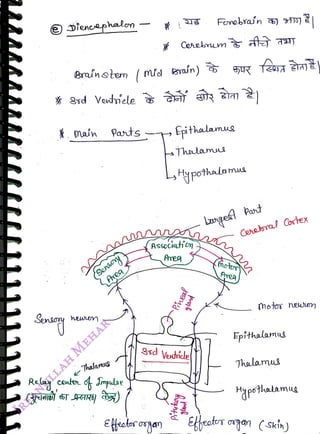 ⓔ Diencephalon — * : यह Forebrain का भाग है|
* Cerebrum के नीचे तथा
Brainstem (Mid Brain) के ऊपर स्थित होता है|
* 3rd Ventricle के दोनों ओर होता है|
* Main Parts → Epithalamus
→ Thalamus
→ Hypothalamus
Largest Part
Cerebral Cortex
Association Area
Sensory Area
Motor Area
Pineal gland
Sensory neuron
Motor neuron
Epithalamus
3rd Ventricle
Thalamus
Thalamus
Relay center of Impulse
Hypothalamus
(सूचनाओं का प्रसारण केंद्र)
Pituitary gland
Effector organ
Effector organ (Skin)
MEHAR